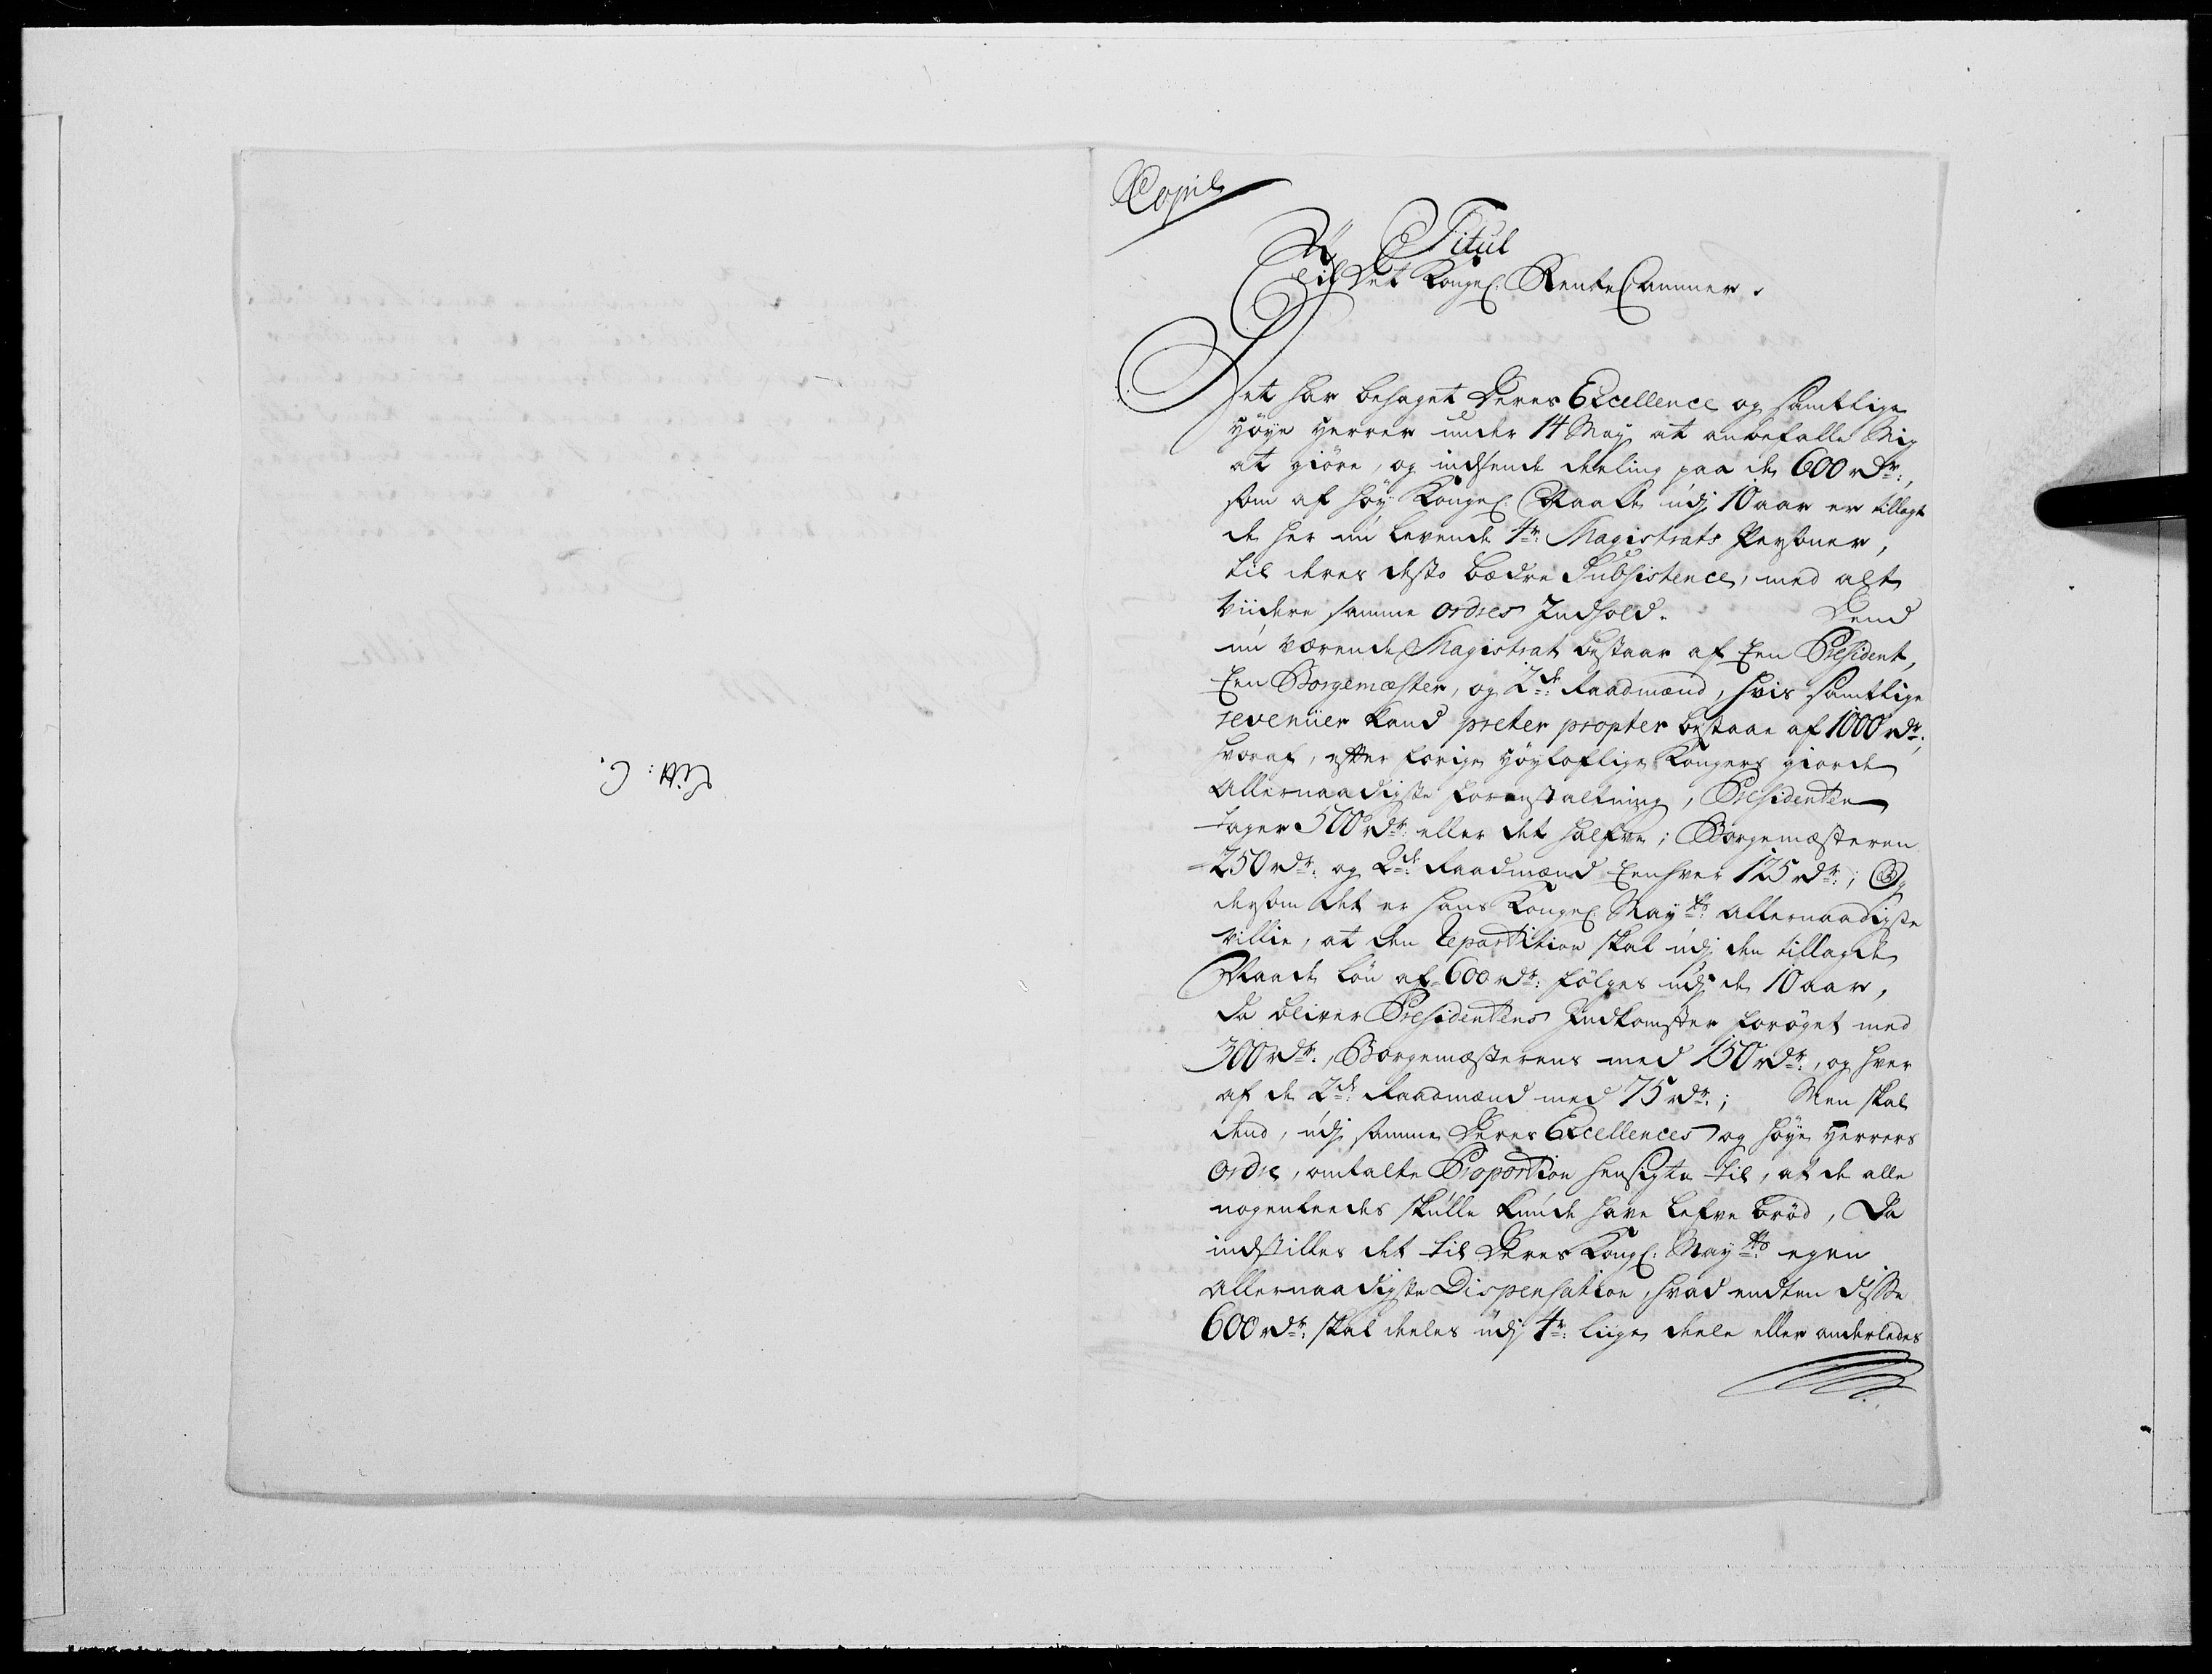 Litt: C.
Copie
Titul
Til Det Kongel: RenteCammer.
Det har behaget Deres Excellence og samtlige
Høye Herrer under 14 May at anbefalle Mig
at giøre, og indsende deeling paa de 600 rdr:,
som af høy Kongel: Naade udj 10 aar er tillagt
de her nú levende 4re: Magistrats Persboner,
til deres desto bædre Subsistence, med alt
viidere samme ordres Indhold. Dend
nú værende Magistrat bestaar af Een President,
Een Borgemæster, og 2de: Raadmænd, hvis samtlige
revenüer kand preter propter bestaae af 1000 rdr:,
hvoraf, efter forige Høyloflige Kongers giorde
Allernaadigste foranstaltning, Presidenten
tager 500 rdr: eller det halfve; Borgemæsteren
250 rdr: og 2de: Raadmænd Eenhver 125 rdr:; Og
dersom det er hans Kongel: May:ts Allernaadigste
villie, at den repartition skal udj den tillagde
Naade løn af 600 rdr: følges udj de 10 aar,
da bliver Presidentens Indkomster forøget med
300 rdr:, Borgemæsterens med 150 rdr:, og hver
af de 2de: Raadmænd med 75 rdr:; Men skal
dend, udj samme Deres Excellences og høye Herrers
ordre, omtalte Proportion hensigte til, at de alle
nogenledes skúlle kúnde have lefve brød, Da
indstilles det til Deres Kongl: May:ts egen
Allernaadigste Dispensation, hvad endten disse
600 rdr: skal deeles udj 4re: liige deele eller anderledes